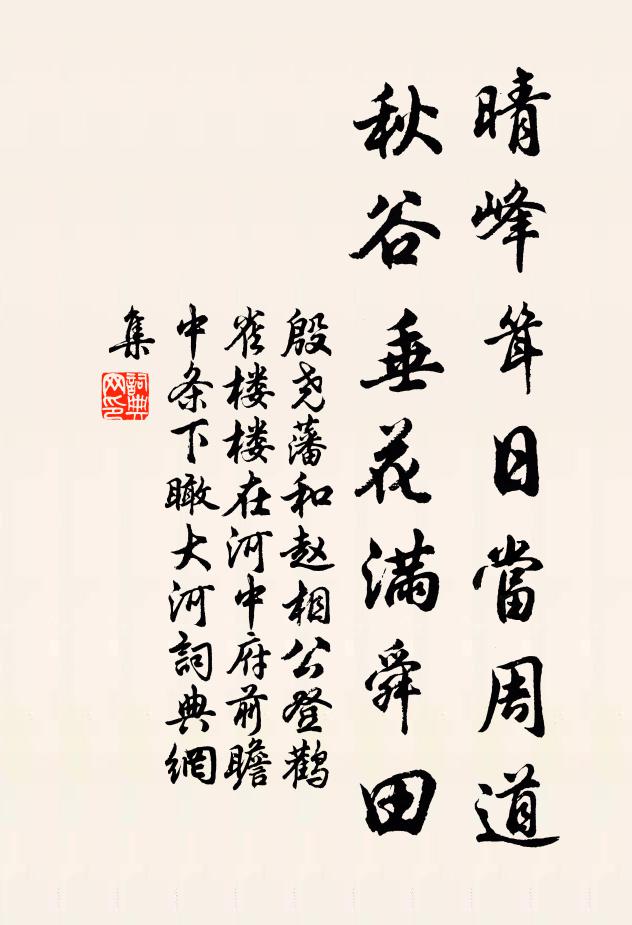 晴峰耸日當周道
秋谷垂花满舜田
殷尧藩和赵相公登鹳
雀楼楼在河中府前瞻
中条下瞰大河詞典網
集
詞典网印